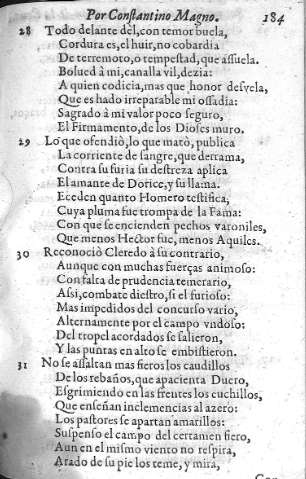 Por Constantino Magno. 184
28 Todo delante del, con temor buela,
Cordura es, el huir, no cobardia
De terremoto, o tempestad, que assuela.
Bolued à mi, canalla vil, dezia:
A quien codicia, mas que honor desvela,
Que es hado irreparable mi ossadia:
Sagrado à mi valor poco seguro,
El Firmamento, de los Dioses muro.
29 Lo que ofendiò, lo que matò, publica
La corriente de sangre, que derrama,
Contra su furia su destreza aplica
El amante de Dorice, y su llama.
Eceden quanto Homero testifica,
Cuya pluma fue trompa de la Fama:
Con que se encienden pechos varoniles,
Que menos Hector fue, menos Aquiles.
30 Reconociò Cleredo à su contrario,
Aunque con muchas fuerças animoso:
Con falta de prudencia temerario,
Assi, combate diestro, si el furioso:
Mas impedidos del concurso vario,
Alternamente por el campo vndoso:
Del tropel acordados se salieron,
Y las puntas en alto se embistieron.
31 No se assaltan mas fieros los caudillos
De los rebaños, que apacienta Duero,
Esgrimiendo en las frentes los cuchillos,
Que enseñan inclemencias al azero:
Los pastores se apartan amarillos:
Suspenso el campo del certamen fiero,
Aun en el mismo viento no respira,
Arado de su pie los teme, y mira,